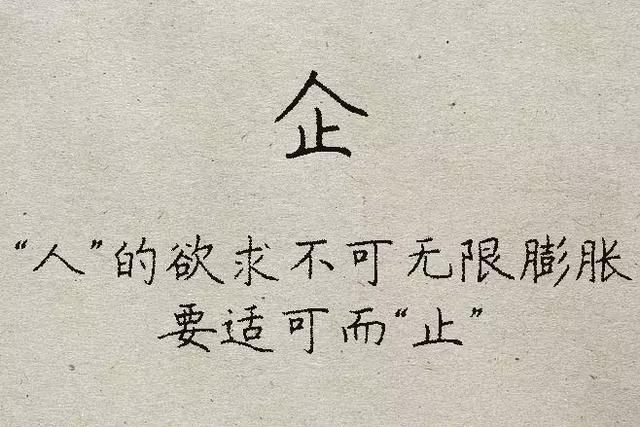 企
“人”的欲求不可无限膨胀
要适可而“止”